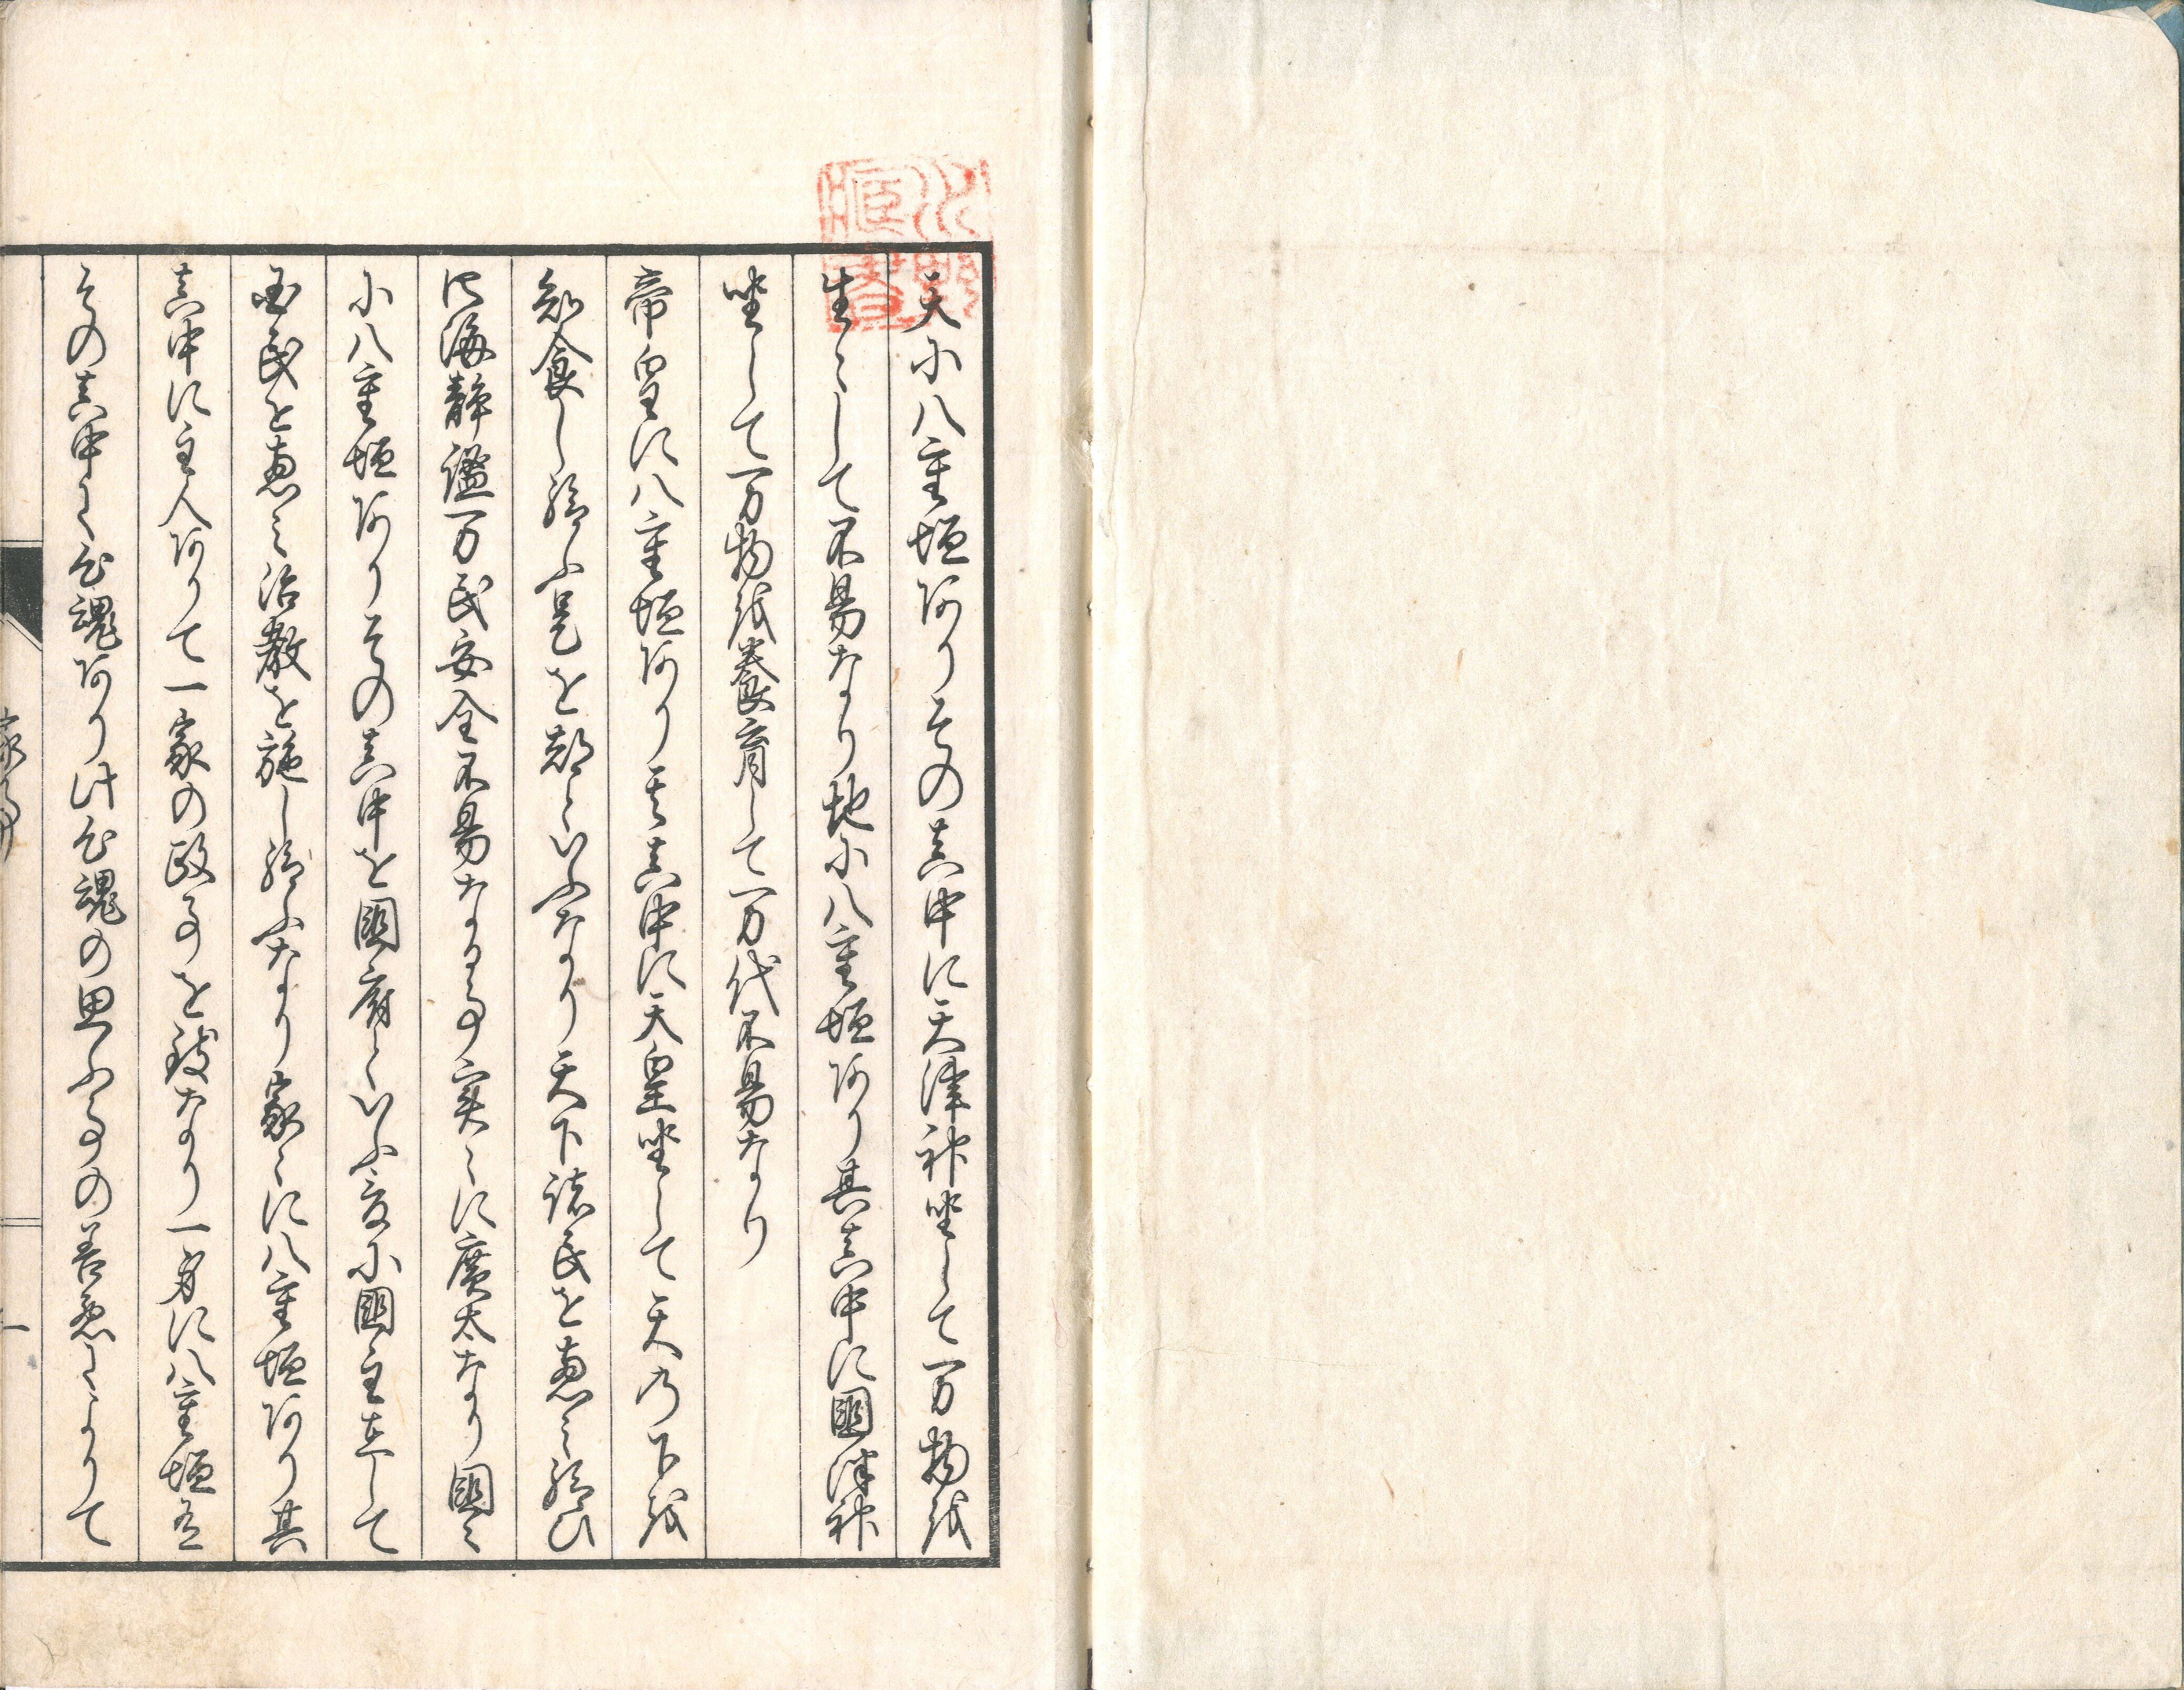 天小八重垣ありその真中に天津神坐して一万物を
生々して不易なり地小八重垣あり其真中に國津神
坐して一万物を養育して一万代不易なり
帝皇に八重垣あり其真中に天皇坐して天乃下を
知食し給ふ是を都といふなり天下諸民を恵み給ひ
四海静謐万民安全不易なる事実々に廣太なり國々
小八重垣ありその真中を國府といふ爰小國主在して
国民を恵み治教を施し給ふなり家々に八重垣あり其
真中に主人ありて一家の政事を鋑なり一身に八重垣有
その真中に心魂あり此心魂の思ふ事の善悪によりて
一